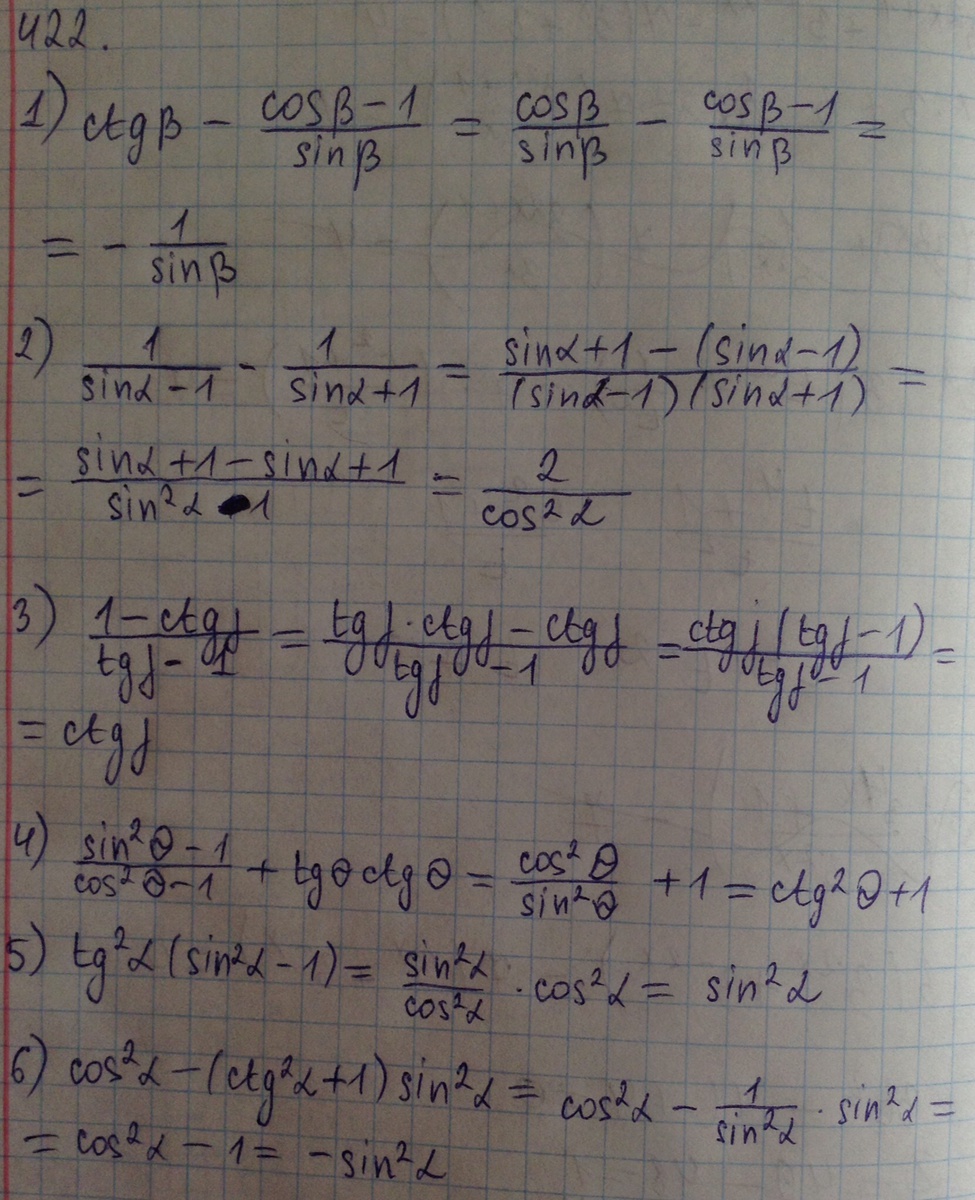 422.
1) ctgβ - (cosβ - 1)/(sinβ) = (cosβ)/(sinβ) - (cosβ - 1)/(sinβ) =
= - 1/(sinβ)
2) 1/(sinα - 1) - 1/(sinα + 1) = (sinα + 1 - (sinα - 1))/((sinα - 1)(sinα + 1)) =
= (sinα + 1 - sinα + 1)/(sin²α - 1) = 2/(cos²α)
3) (1 - ctgγ)/(tgγ - 1) = (tgγ · ctgγ - ctgγ)/(tgγ - 1) = (ctgγ(tgγ - 1))/(tgγ - 1) =
= ctgγ
4) (sin²θ - 1)/(cos²θ - 1) + tgθ ctgθ = (cos²θ)/(sin²θ) + 1 = ctg²θ + 1
5) tg²α (sin²α - 1) = (sin²α)/(cos²α) · cos²α = sin²α
6) cos²α - (ctg²α + 1) sin²α = cos²α - 1/(sin²α) · sin²α =
= cos²α - 1 = - sin²α